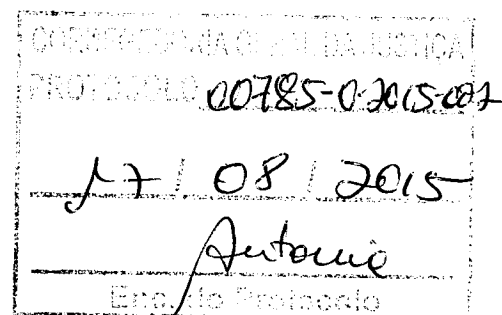 CORREGEDORIA GERAL DA JUSTIÇA
PROTOCOLO 00785-0.2015-002
17 / 08 / 2015
Antonia
Enc. do Protocolo